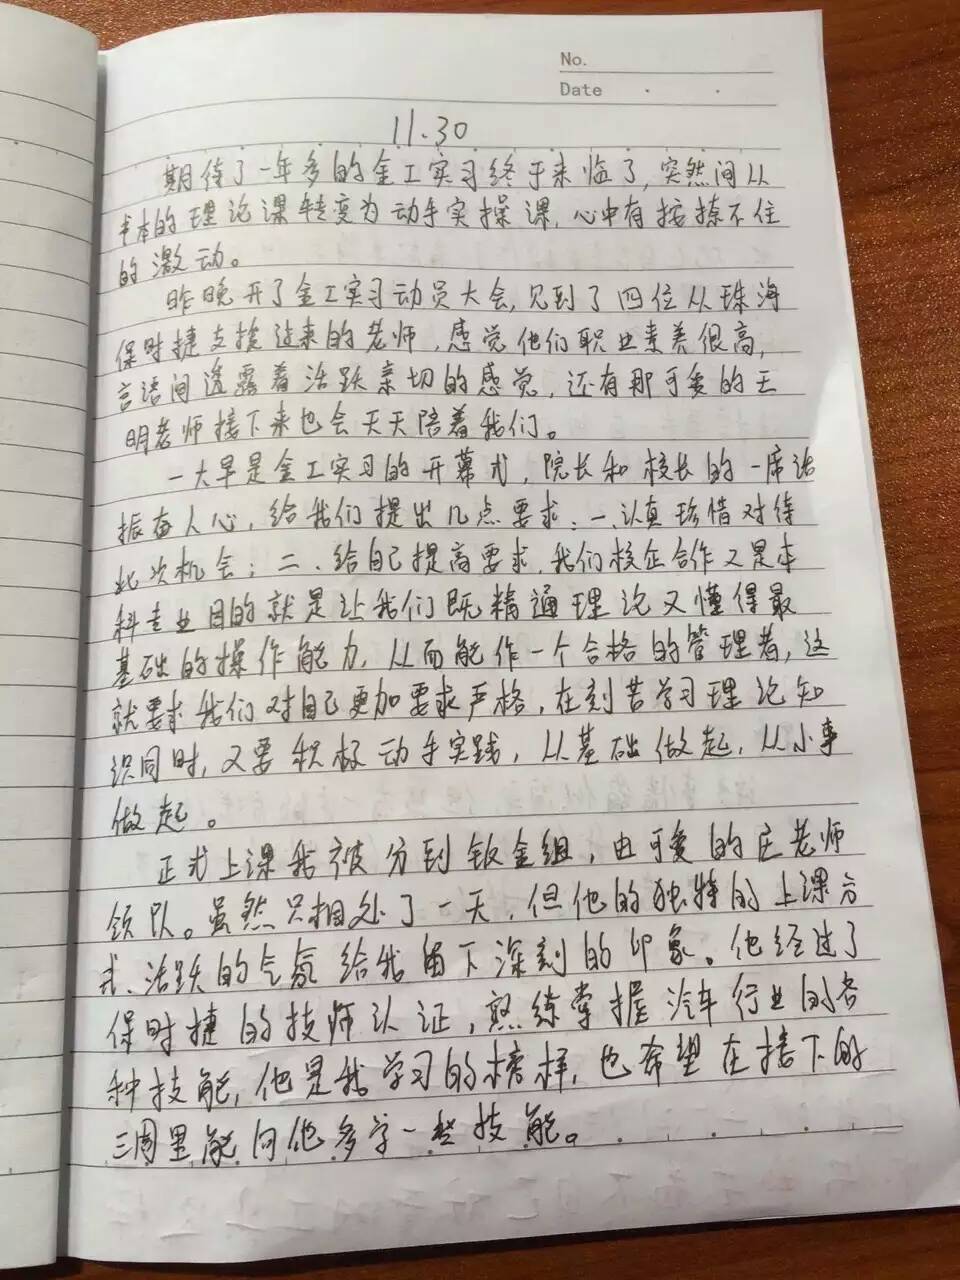 No.
Date
11.30
期待了一年多的金工实习终于来临了，突然间从
书本的理论课转变为动手实操课，心中有按捺不住
的激动。
昨晚开了金工实习动员大会，见到了四位从珠海
保时捷支援过来的老师，感觉他们职业素养很高，
言语间透露着活跃亲切的感觉，还有那可爱的王
明老师接下来也会天天陪着我们。
一大早是金工实习的开幕式，院长和校长的一席话
振奋人心，给我们提出几点要求：一、认真珍惜对待
此次机会；二、给自己提高要求，我们校企合作又是本
科专业目的就是让我们既精通理论又懂得最
基础的操作能力，从而能作一个合格的管理者，这
就要求我们对自己更加要求严格，在刻苦学习理论知
识同时，又要积极动手实践，从基础做起，从小事
做起。
正式上课我被分到钣金组，由可爱的庄老师
领队。虽然只相处了一天，但他的独特的上课方
式、活跃的气氛给我留下深刻的印象。他经过了
保时捷的技师认证，熟练掌握汽车行业的各
种技能，他是我学习的榜样，也希望在接下的
三周里能向他多学一些技能。